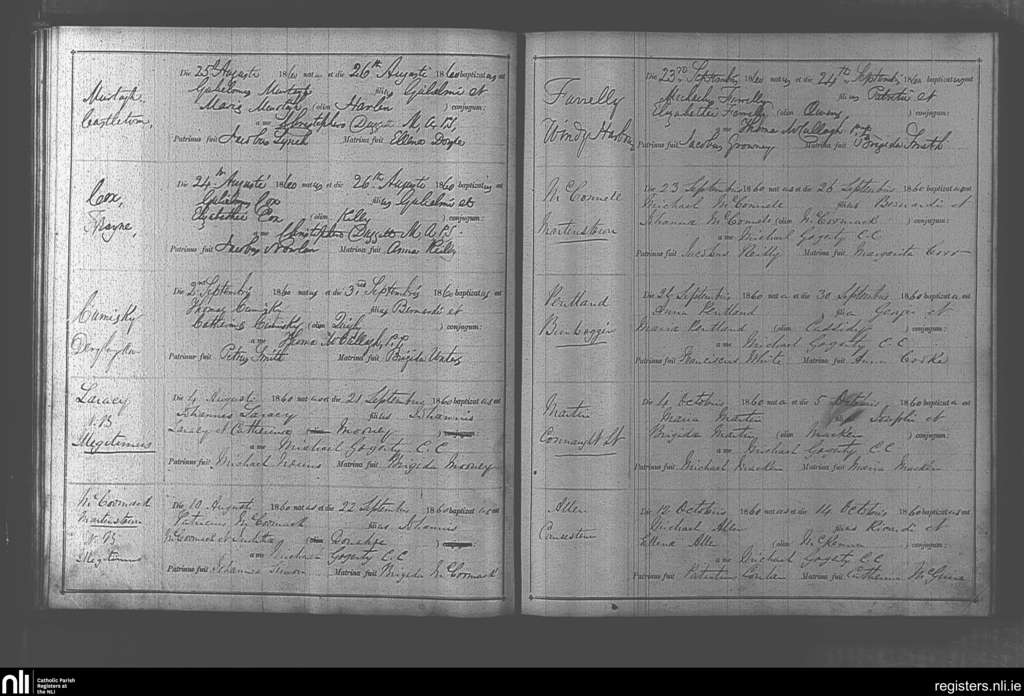 Murtagh,
Castletown,
Die 25th Augusti 1860 natus et die 26th Augusti 1860 baptizatus est
Gulielmus Murtagh filius Gulielmi et
Maria Murtagh (olim Harlin ) conjugum:
a me Christophero Duggett M, A, P, S,
Patrinus fuit Jacobus Lynch Matrina fuit Ellena Doyle
Cox,
Frayne,
Die 24th Augusti 1860 natus et die 26th Augusti 1860 baptizatus est
Gulielmus Cox filius Gulielmi et
Elizabethae Cox (olim Kelly ) conjugum:
a me Christophero Duggett M, A, P, S,
Patrinus fuit Jacobus Nowlan Matrina fuit Anna Reilly
Cumisky
Die 2nd Septembris 1860 natus et die 3rd Septembris 1860 baptizatus est
Thomas Cumisky filius Bernardi et
Catherina Cumisky (olim ) conjugum:
a me Thoma McCullagh, P.P.
Patrinus fuit Petrus Smith Matrina fuit Brigida
Laracy
N.B
Illegitimus
Die 4 Augusti 1860 natus et die 21 Septembris 1860 baptizatus est
Johannes Laracy filius Johannis
Laracy et Catherina (olim Mooney ) conjugum:
a me Michael Gogarty C.C
Patrinus fuit Michael Matrina fuit Brigida Mooney
McCormack
Martinstown
N.B
Illegitimus
Die 10 Augusti 1860 natus et die 22 Septembris 1860 baptizatus est
Patricius McCormack filius Johannis
McCormack et (olim Donahoe ) conjugum:
a me Michael Gogarty C.C
Patrinus fuit Johannes Matrina fuit Brigida McCormack
Farrelly
Windy Harbour
Die 23rd Septembris 1860 natus et die 24th Septembris 1860 baptizatus est
Michael Farrelly filius Patritii et
Elizabethae Farrelly (olim Owens ) conjugum:
a me Thoma McCullagh P.P.
Patrinus fuit Jacobus Growney Matrina fuit Brigida Smith
McConnole
Martinstown
Die 23 Septembris 1860 natus et die 26 Septembris 1860 baptizatus est
Michael McConnole filius Bernardi et
Johanna McConnole (olim McCormack ) conjugum:
a me Michael Gogarty C.C
Patrinus fuit Jacobus Reilly Matrina fuit Margarita
Pentland
Die 26 Septembris 1860 nata et die 30 Septembris 1860 baptizata est
Anna Pentland filia Georgii et
Maria Pentland (olim Cassidy ) conjugum:
a me Michael Gogarty C.C
Patrinus fuit Franciscus White Matrina fuit Anna Cooke
Martin
Connaught St
Die 4 Octobris 1860 nata et die 5 Octobris 1860 baptizata est
Maria Martin filia Josephi et
Brigida Martin (olim Macken ) conjugum:
a me Michael Gogarty C.C
Patrinus fuit Michael Macklin Matrina fuit Maria Macklin
Allen
Die 12 Octobris 1860 natus et die 14 Octobris 1860 baptizatus est
Michael Allen filius Ricardi et
Ellena Allen (olim McKenna ) conjugum:
a me Michael Gogarty C.C
Patrinus fuit Patritius Matrina fuit Catherina McGuire
nli
Catholic Parish
Registers at
the NLI
registers.nli.ie